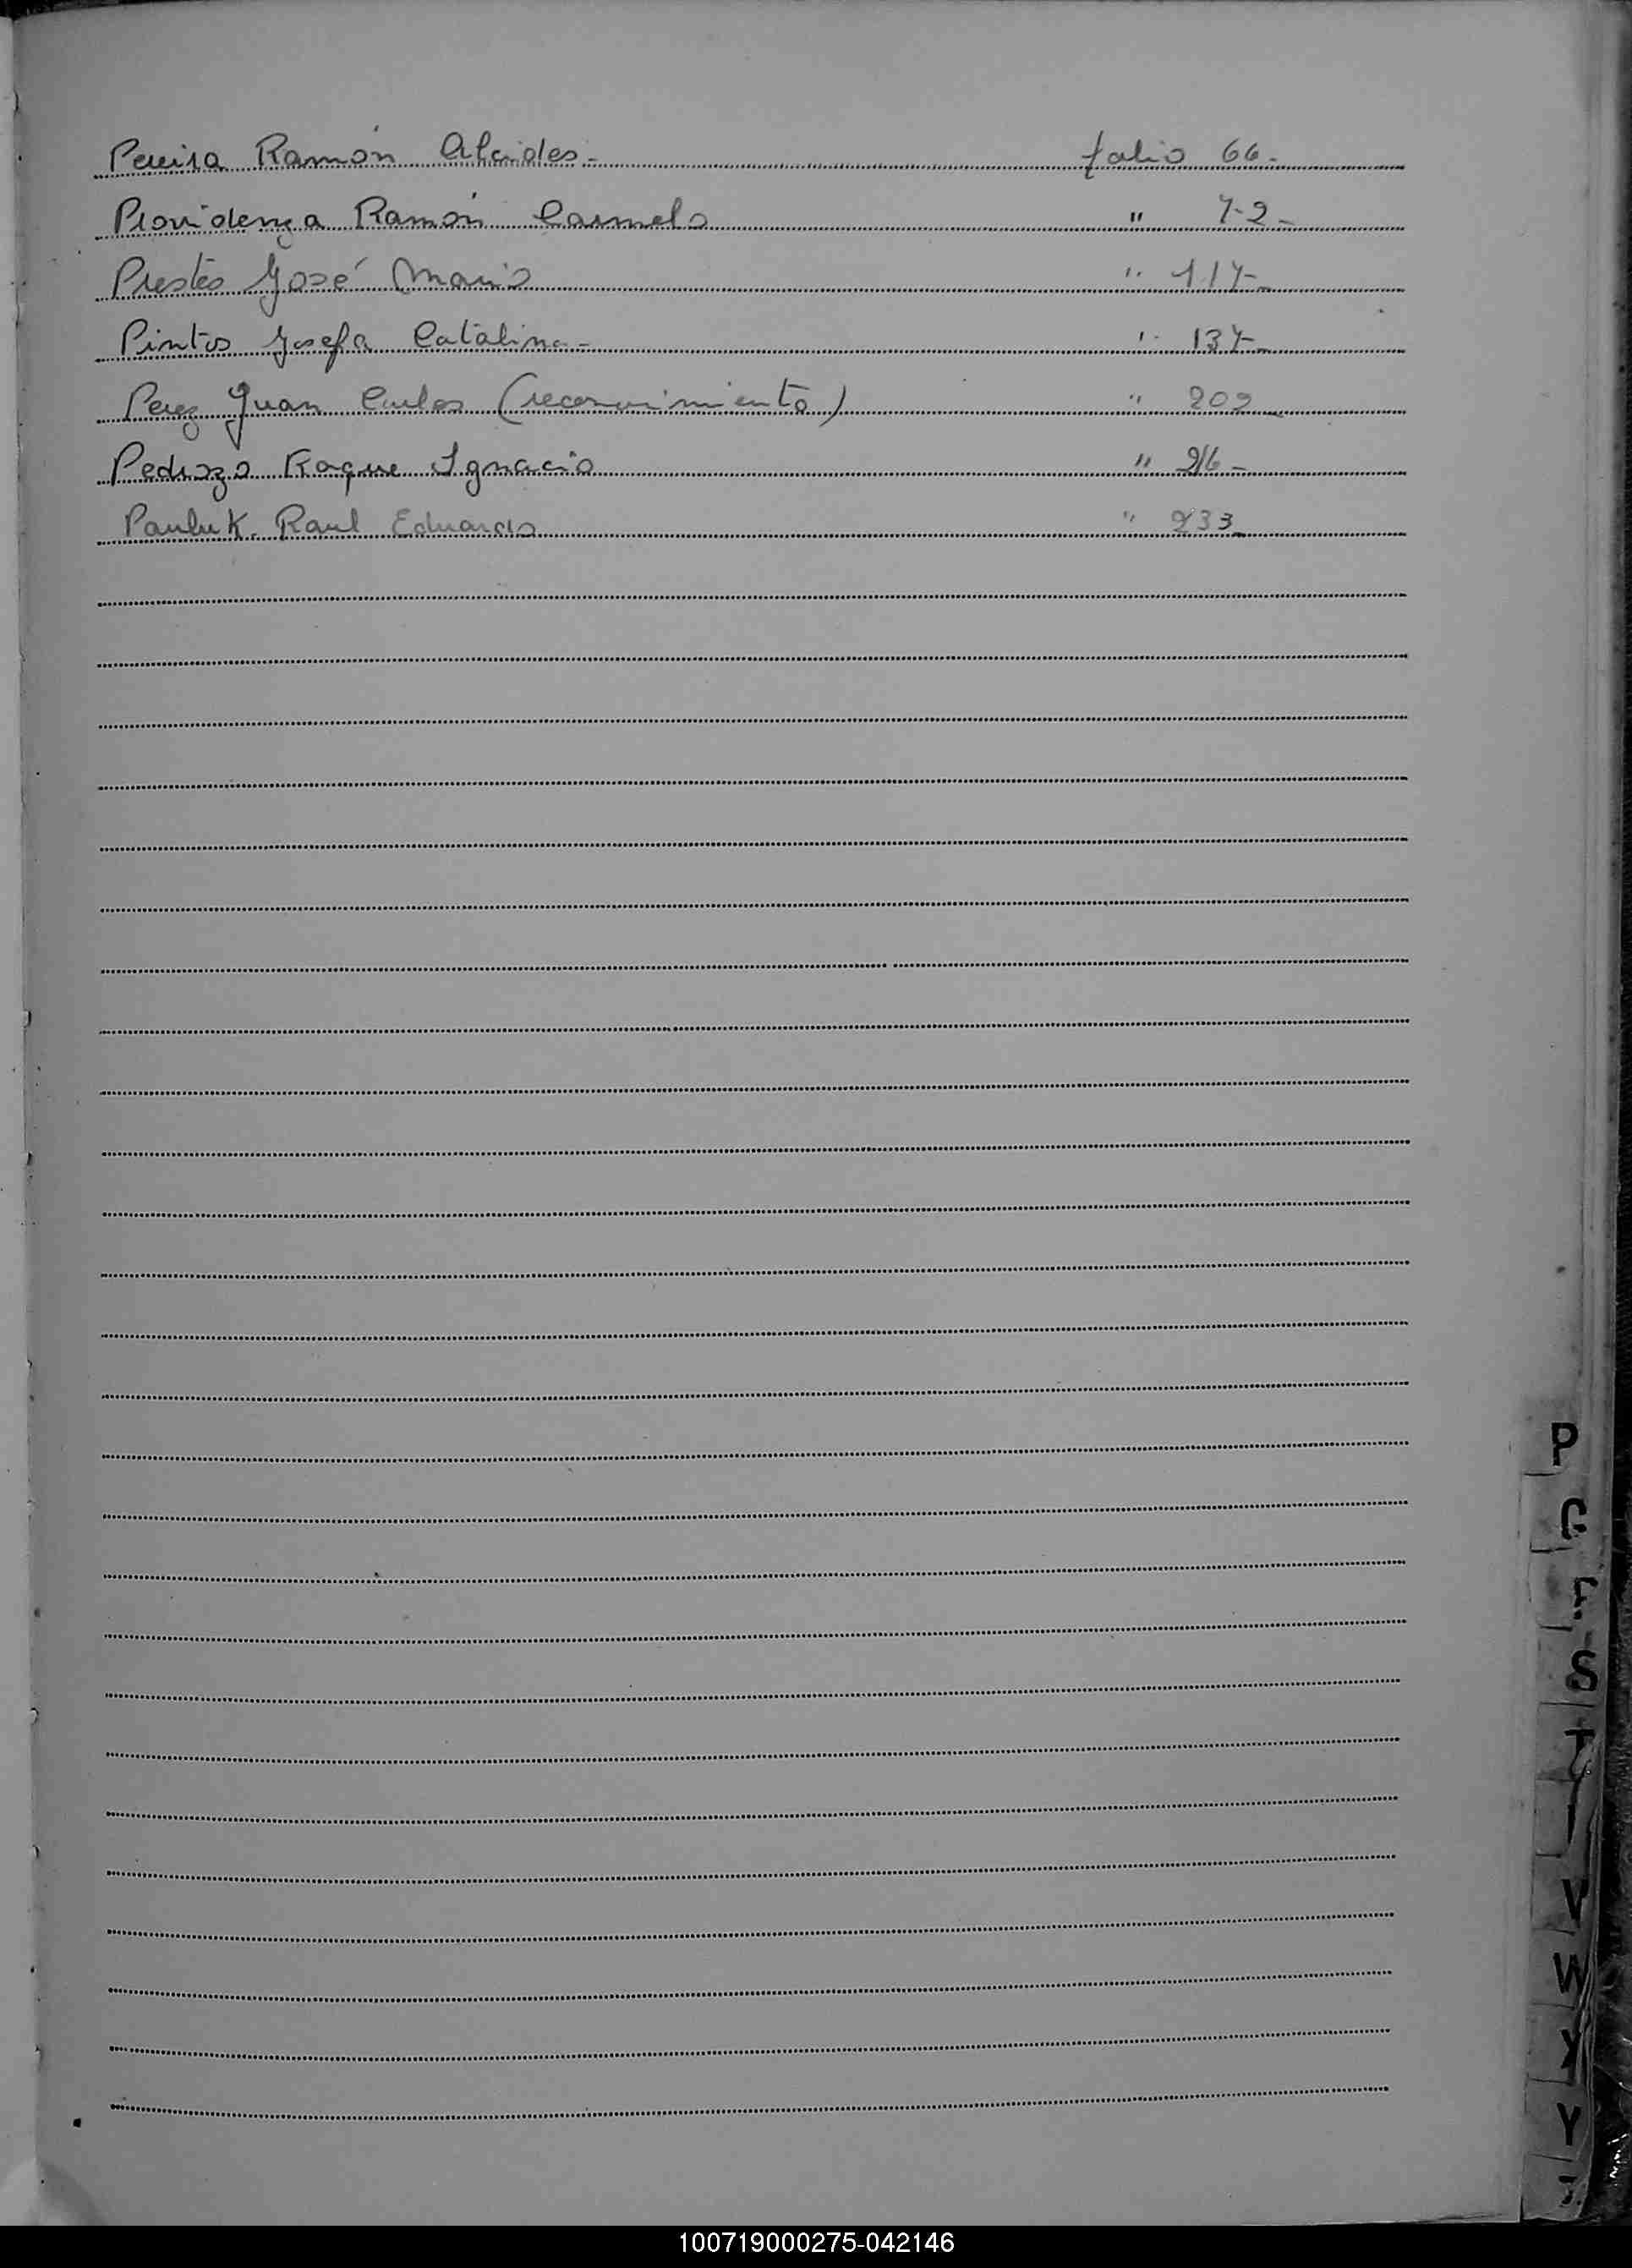 Pereira Ramón Alcides - folio 66.-
Providenza Ramón Carmelo " 72-
Prestes José Mario " 117-
Pintos Josefa Catalina - " 137-
Perez Juan Carlos (reconocimiento) " 209
Pedrozo Roque Ignacio " 216-
Pauluk. Raul Eduardo " 233
P
S
T
V
W
Y
100719000275-042146